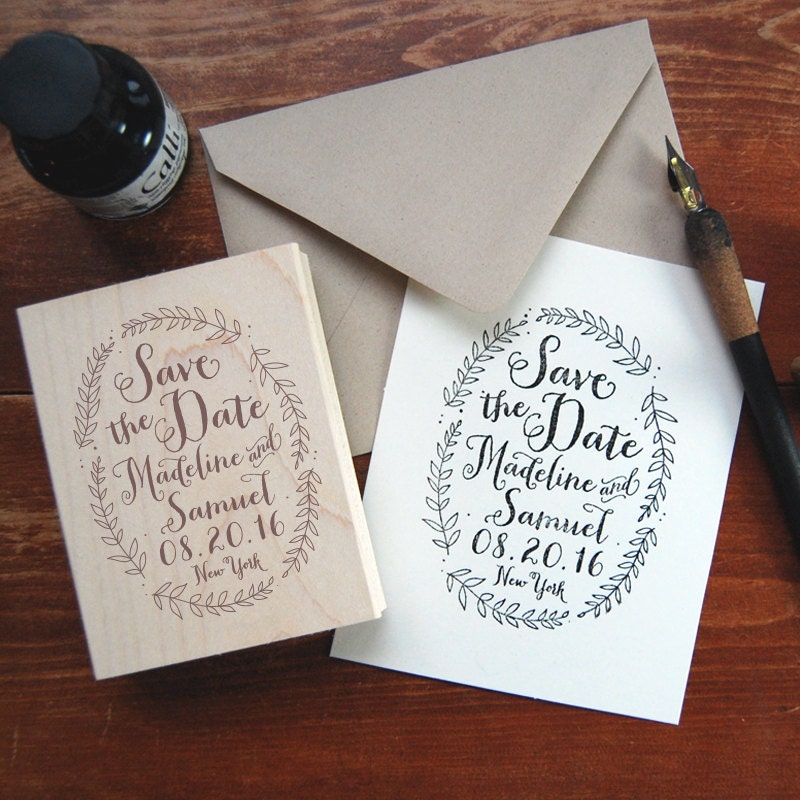 Calli
Save
the Date
Madeline and
Samuel
08.20.16
New York
Save
the Date
Madeline and
Samuel
08.20.16
New York